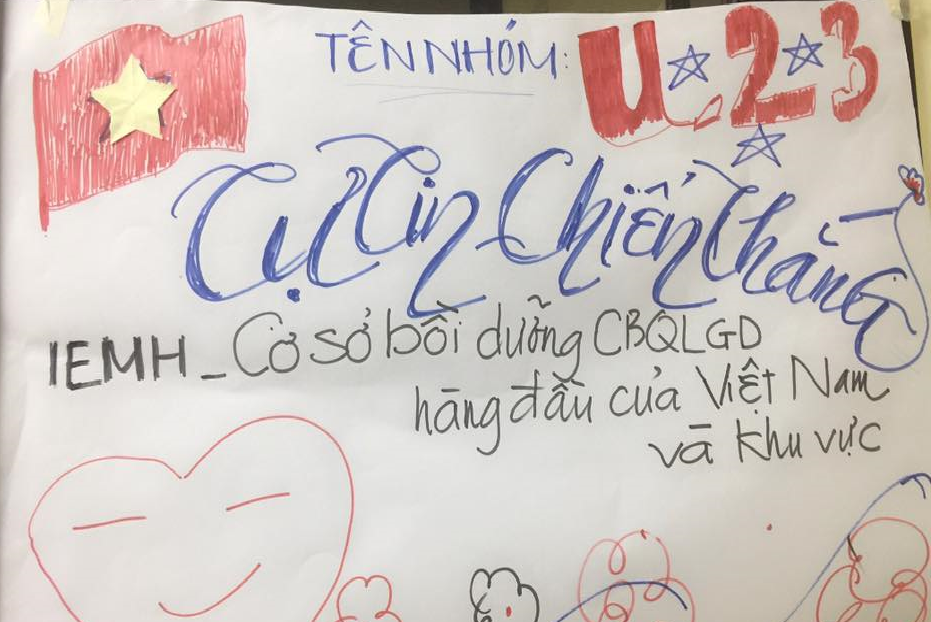 TÊN NHÓM: U.23
Tự Tin Chiến Thắng
IEMH_Cơ sở bồi dưỡng CBQLGD
hàng đầu của Việt Nam
và khu vực